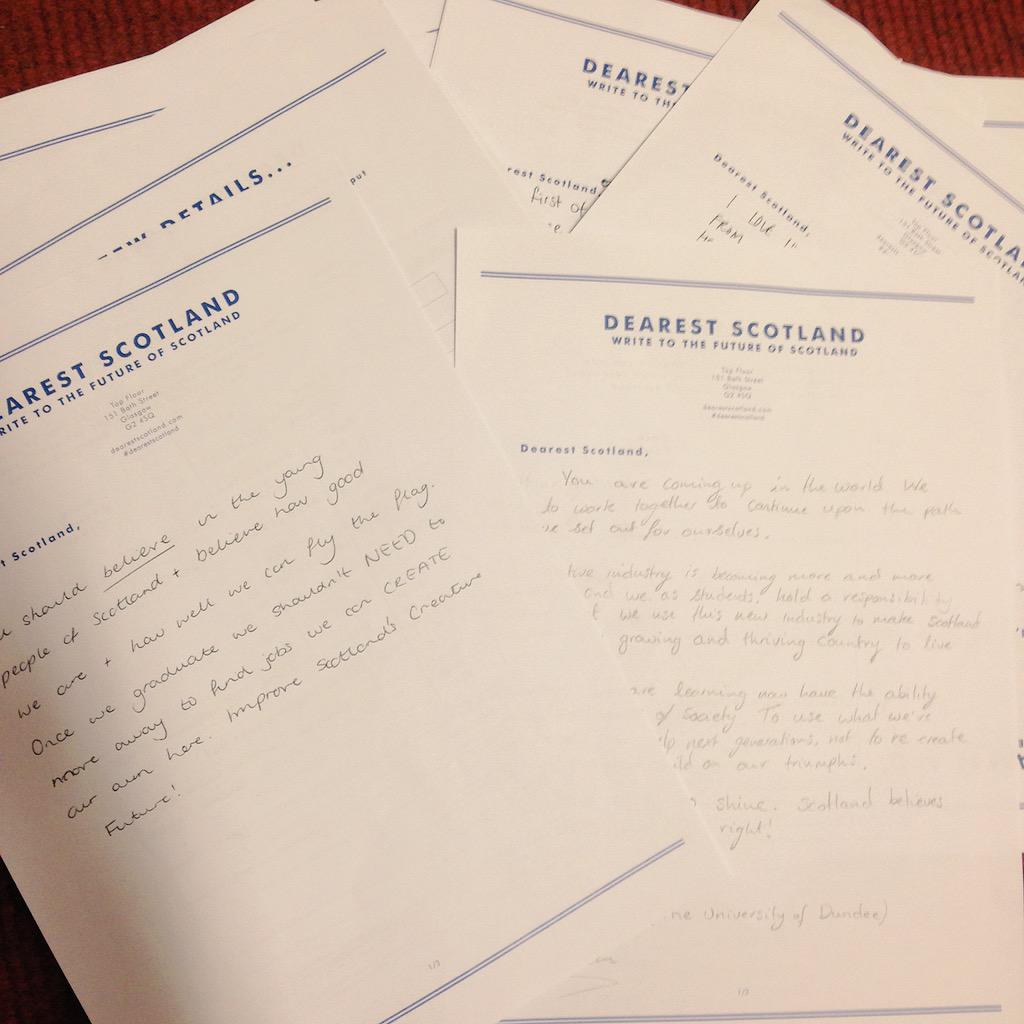 EW DETAILS...
put
EAREST SCOTLAND
RITE TO THE FUTURE OF SCOTLAND
Top Floor
151 Bath Street
Glasgow
G2 4SQ
dearestscotland.com
#dearestscotland
t Scotland,
u should believe in the young
people of Scotland + believe how good
we are + how well we can fly the flag.
Once we graduate we shouldn't NEED to
move away to find jobs we can CREATE
our own here. Improve Scotland's Creative
Future!
1/3
DEAREST
WRITE TO TH
rest Scotland,
first of
DEAREST SCOTLA
WRITE TO THE FUTURE OF SCOTLAN
Dearest Scotland,
I LOVE
FROM
DEAREST SCOTLAND
WRITE TO THE FUTURE OF SCOTLAND
Top Floor
151 Bath Street
Glasgow
G2 4SQ
dearestscotland.com
#dearestscotland
Dearest Scotland,
You are coming up in the world We
to work together to continue upon the path
ve set out for ourselves.
tive industry is becoming more and more
and we as students, hold a responsibility
if we use this new industry to make Scotland
growing and thriving country to live
are learning now have the ability
of society. To use what we've
lp next generations, not to re create
ild on our triumphs.
shine. Scotland believes
right!
ne University of Dundee)
1/3